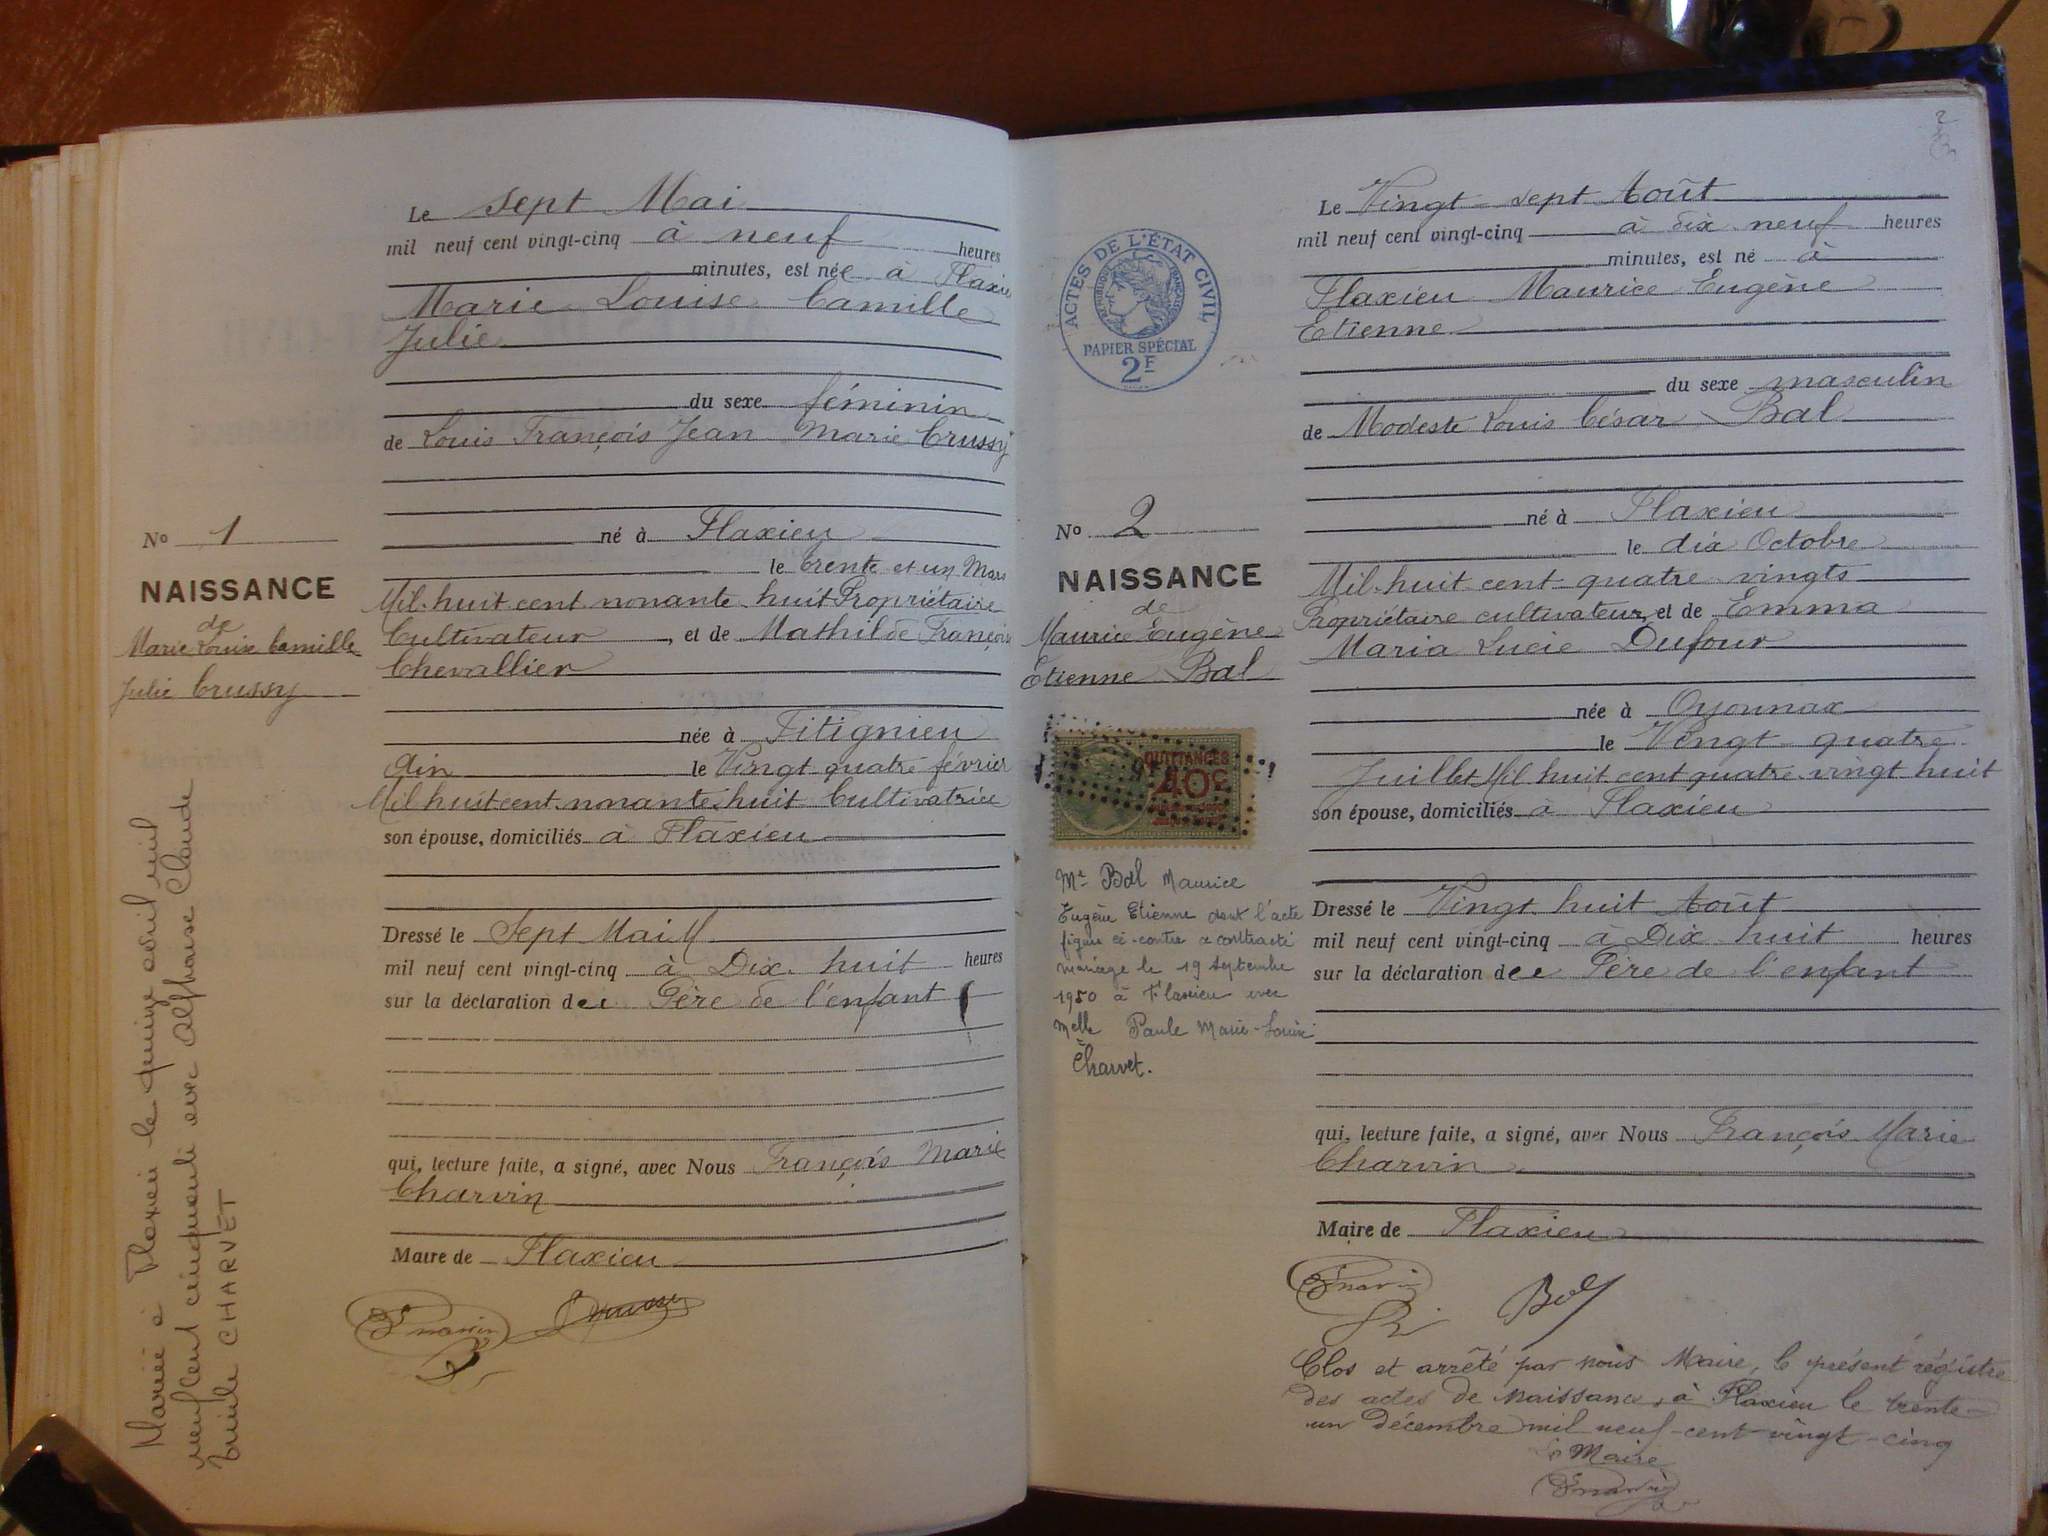 Le sept Mai
mil neuf cent vingt-cinq à neuf heures
minutes, est née à Flaxieu
Marie Louise Camille
Julie
du sexe féminin
de Louis François Jean Marie Crussy
né à Flaxieu
le trente et un Mars
Mil huit cent nonante huit Propriétaire
Cultivateur, et de Mathilde Françoise
Chevallier
née à Fitignieu
Ain le Vingt quatre février
Mil huit cent nonante huit Cultivatrice
son épouse, domiciliés à Flaxieu
Dressé le Sept Mai M
mil neuf cent vingt-cinq à Dix huit heures
sur la déclaration du Père de l'enfant
qui, lecture faite, a signé, avec Nous François Marie
Charvin
Maire de Flaxieu
No 1
NAISSANCE
de
Marie Louise Camille
Julie Crussy
Mariée à Flaxieu le quinze avril mil
neuf cent cinquante avec Alphonse Claude
Emile CHARVET
2
Le Vingt-sept Août
mil neuf cent vingt-cinq à dix neuf heures
minutes, est né à
Flaxieu Maurice Eugène
Etienne
du sexe masculin
de Modeste Louis César Bal
né à Flaxieu
le dix Octobre
Mil huit cent quatre vingts
Propriétaire cultivateur, et de Emma
Maria Lucie Dufour
née à Oyonnax
le Vingt quatre
Juillet Mil huit cent quatre vingt huit
son épouse, domiciliés à Flaxieu
Dressé le Vingt huit Août
mil neuf cent vingt-cinq à Dix huit heures
sur la déclaration du Père de l'enfant
qui, lecture faite, a signé, avec Nous François Marie
Charvin
Maire de Flaxieu
Bal
Clos et arrêté par nous Maire, le présent régistre
des actes de Naissance, à Flaxieu le trente
un décembre mil neuf-cent-vingt-cinq
Le Maire
ACTES DE L'ÉTAT CIVIL
RÉPUBLIQUE FRANÇAISE
PAPIER SPÉCIAL
2F
No 2
NAISSANCE
de
Maurice Eugène
Etienne Bal
QUITTANCES
40c
Mr Bal Maurice
Eugène Etienne dont l'acte
figure ci-contre a contracté
mariage le 19 septembre
1950 à Flaxieu avec
Melle Paule Marie-Louise
Charvet.